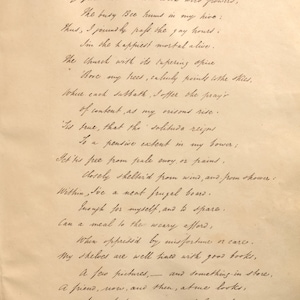 The busy Bee hums in my rice:
Thus, I proudly pass the gay hours:
I'm the happiest mortal alive.
The Church with its tapering spire
'Bove my trees, calmly points to the skies,
Where each sabbath, I offer the pray'r
of content, as my orisons rise.
'Tis true, that the solitude reigns
To a pensive extent in my bower;
Yet 'tis free from pale envy or pains.
Closely shelter'd from wind, and from shower:
Within, I've a neat frugal board.
Enough for myself, and to spare:
Can a meal to the weary afford,
When oppress'd by misfortune or care.
My shelves are well lined with good books,
A few pictures, — and something in store.
A friend, now, and then, at me looks,